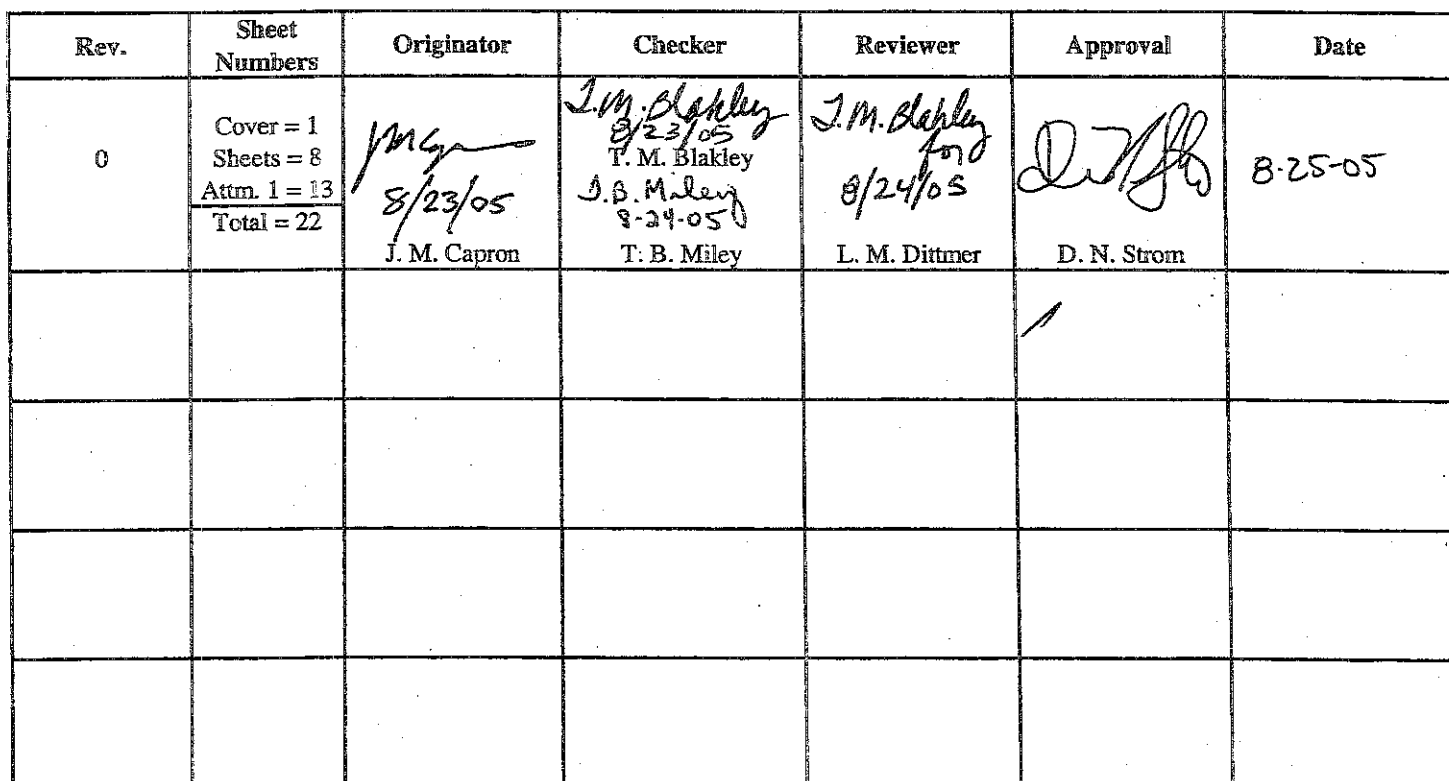 Rev.
Sheet
Numbers
Originator
Checker
Reviewer
Approval
Date
0
Cover = 1
Sheets = 8
Attm. 1 = 13
Total = 22
8/23/05
J. M. Capron
T.M. Blakley
8/23/05
T. M. Blakley
T.B. Miley
8-24-05
T. B. Miley
T.M. Blakley
for
8/24/05
L. M. Dittmer
D. N. Strom
8-25-05